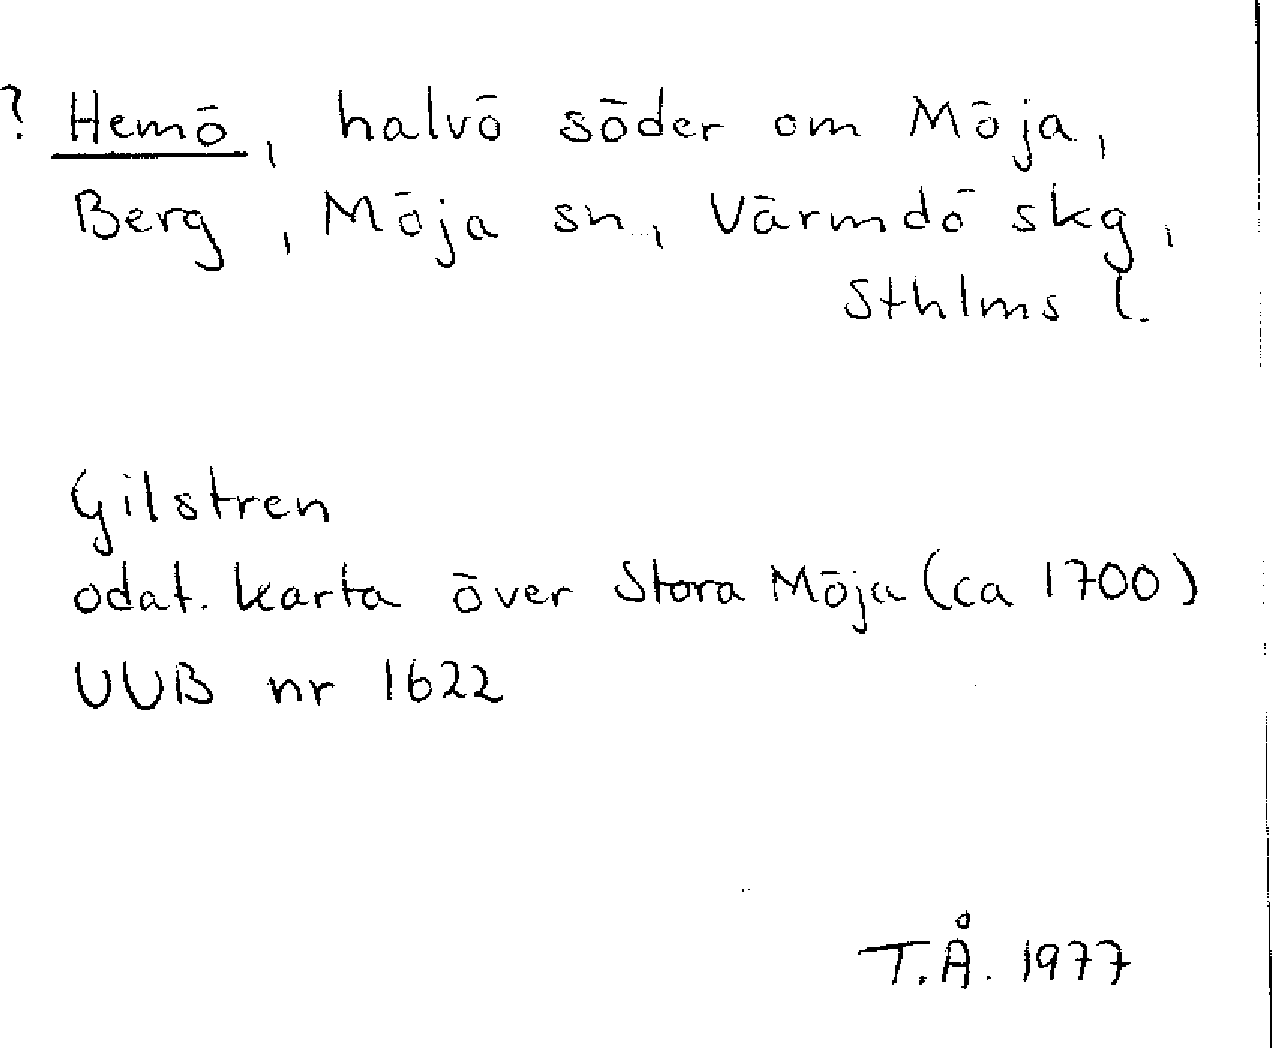 ? Hemö, halvö söder om Möja,
Berg, Möja sn, Värmdö skg,
Sthlms l.
Gilstren
odat. karta över Stora Möja (ca 1700)
UUB nr 1622
T.Å. 1977